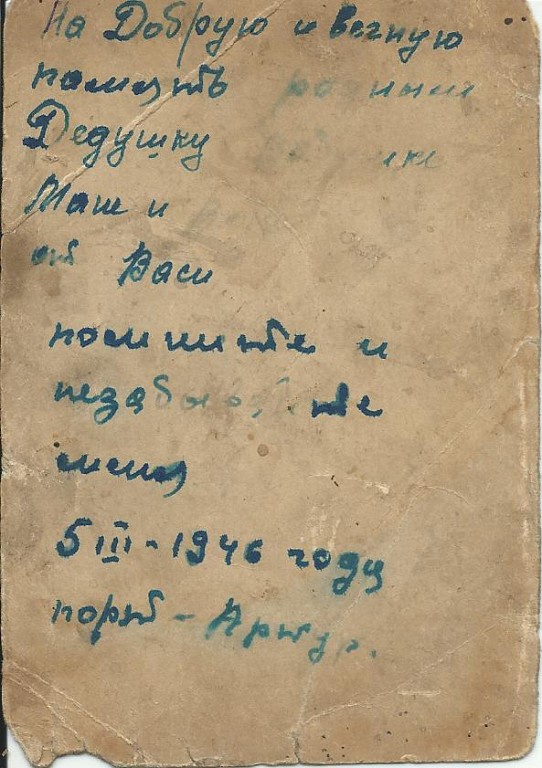 На Добрую и вечную
память родным
Дедушку
Маши и
от Васи
помните и
незабывайте
меня
5 III - 1946 году
порт - Артур.